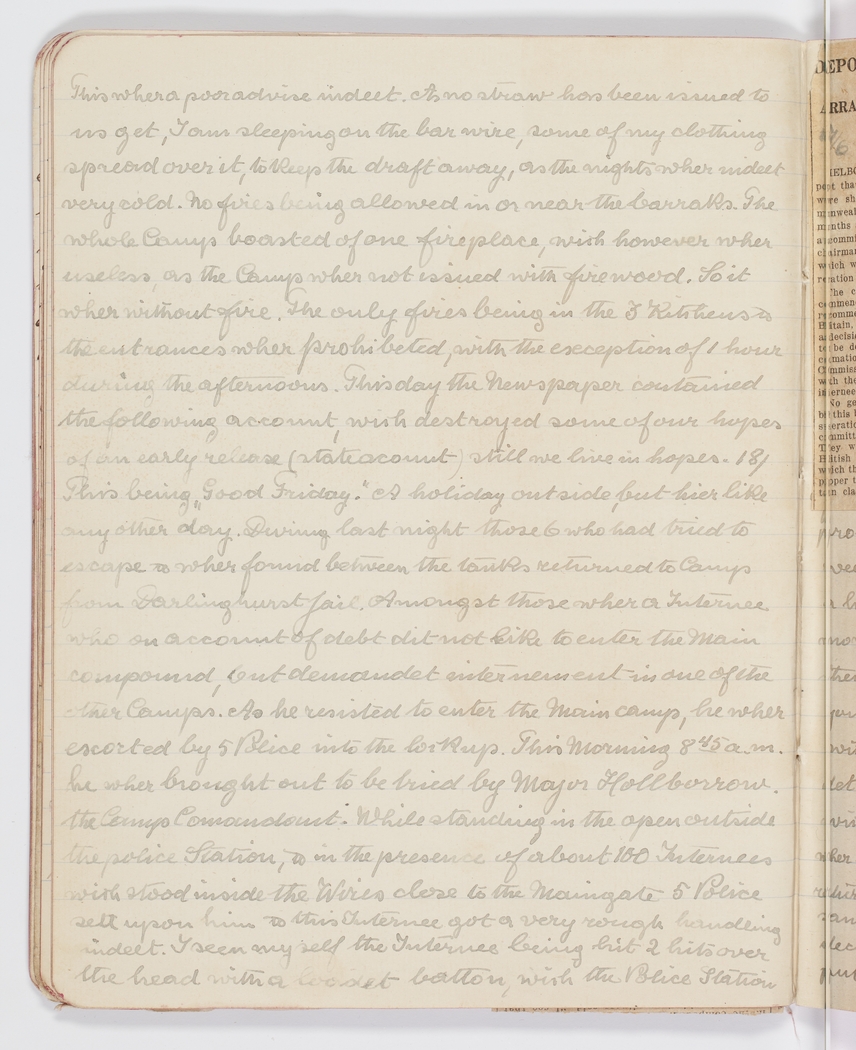 This wher a poor advise indeet. As no straw has been issued to
us get, I am sleeping on the bar wire, some of my clothing
spread over it, to keep the draft away, as the nights wher indeet
very cold. No fires being allowed in or near the barraks. The
whole Camp boasted of one fireplace, wish however wher
useless, as the Camp wher not issued with firewood. So it
wher without fire. The only fires being in the 3 Kitshens &
the entrances wher prohibeted, with the exception of 1 hour
during the afternoons. This day the Newspaper contained
the following account, wish destroyed some of our hopes
of an early release (state acount) still we live in hopes. - 18/
This being "Good Friday." A holiday outside, but hier like
any other day. During last night those 6 who had tried to
escape & wher found between the tanks returned to Camp
from Darlinghurst Jail. Amongst those wher a Internee
who on account of debt dit not like to enter the Main
compound, but demandet internement in one of the
other Camps. As he resisted to enter the Main camp, he wher
escorted by 5 Police into the lockup. This Morning 8 45 a.m.
he wher brought out to be tried by Major Hollborrow.
the Camp Comandant. While standing in the open outside
the police Station, & in the presence of about 100 Internees
wish stood inside the Wires close to the Maingate 5 Police
sett upon him & this Internee got a very rough handling
indeet. I seen myself the Internee being hit 2 hits over
the head with a loadet batton, wish the Police Station
DEPO
ARRA
17/6
MELBO